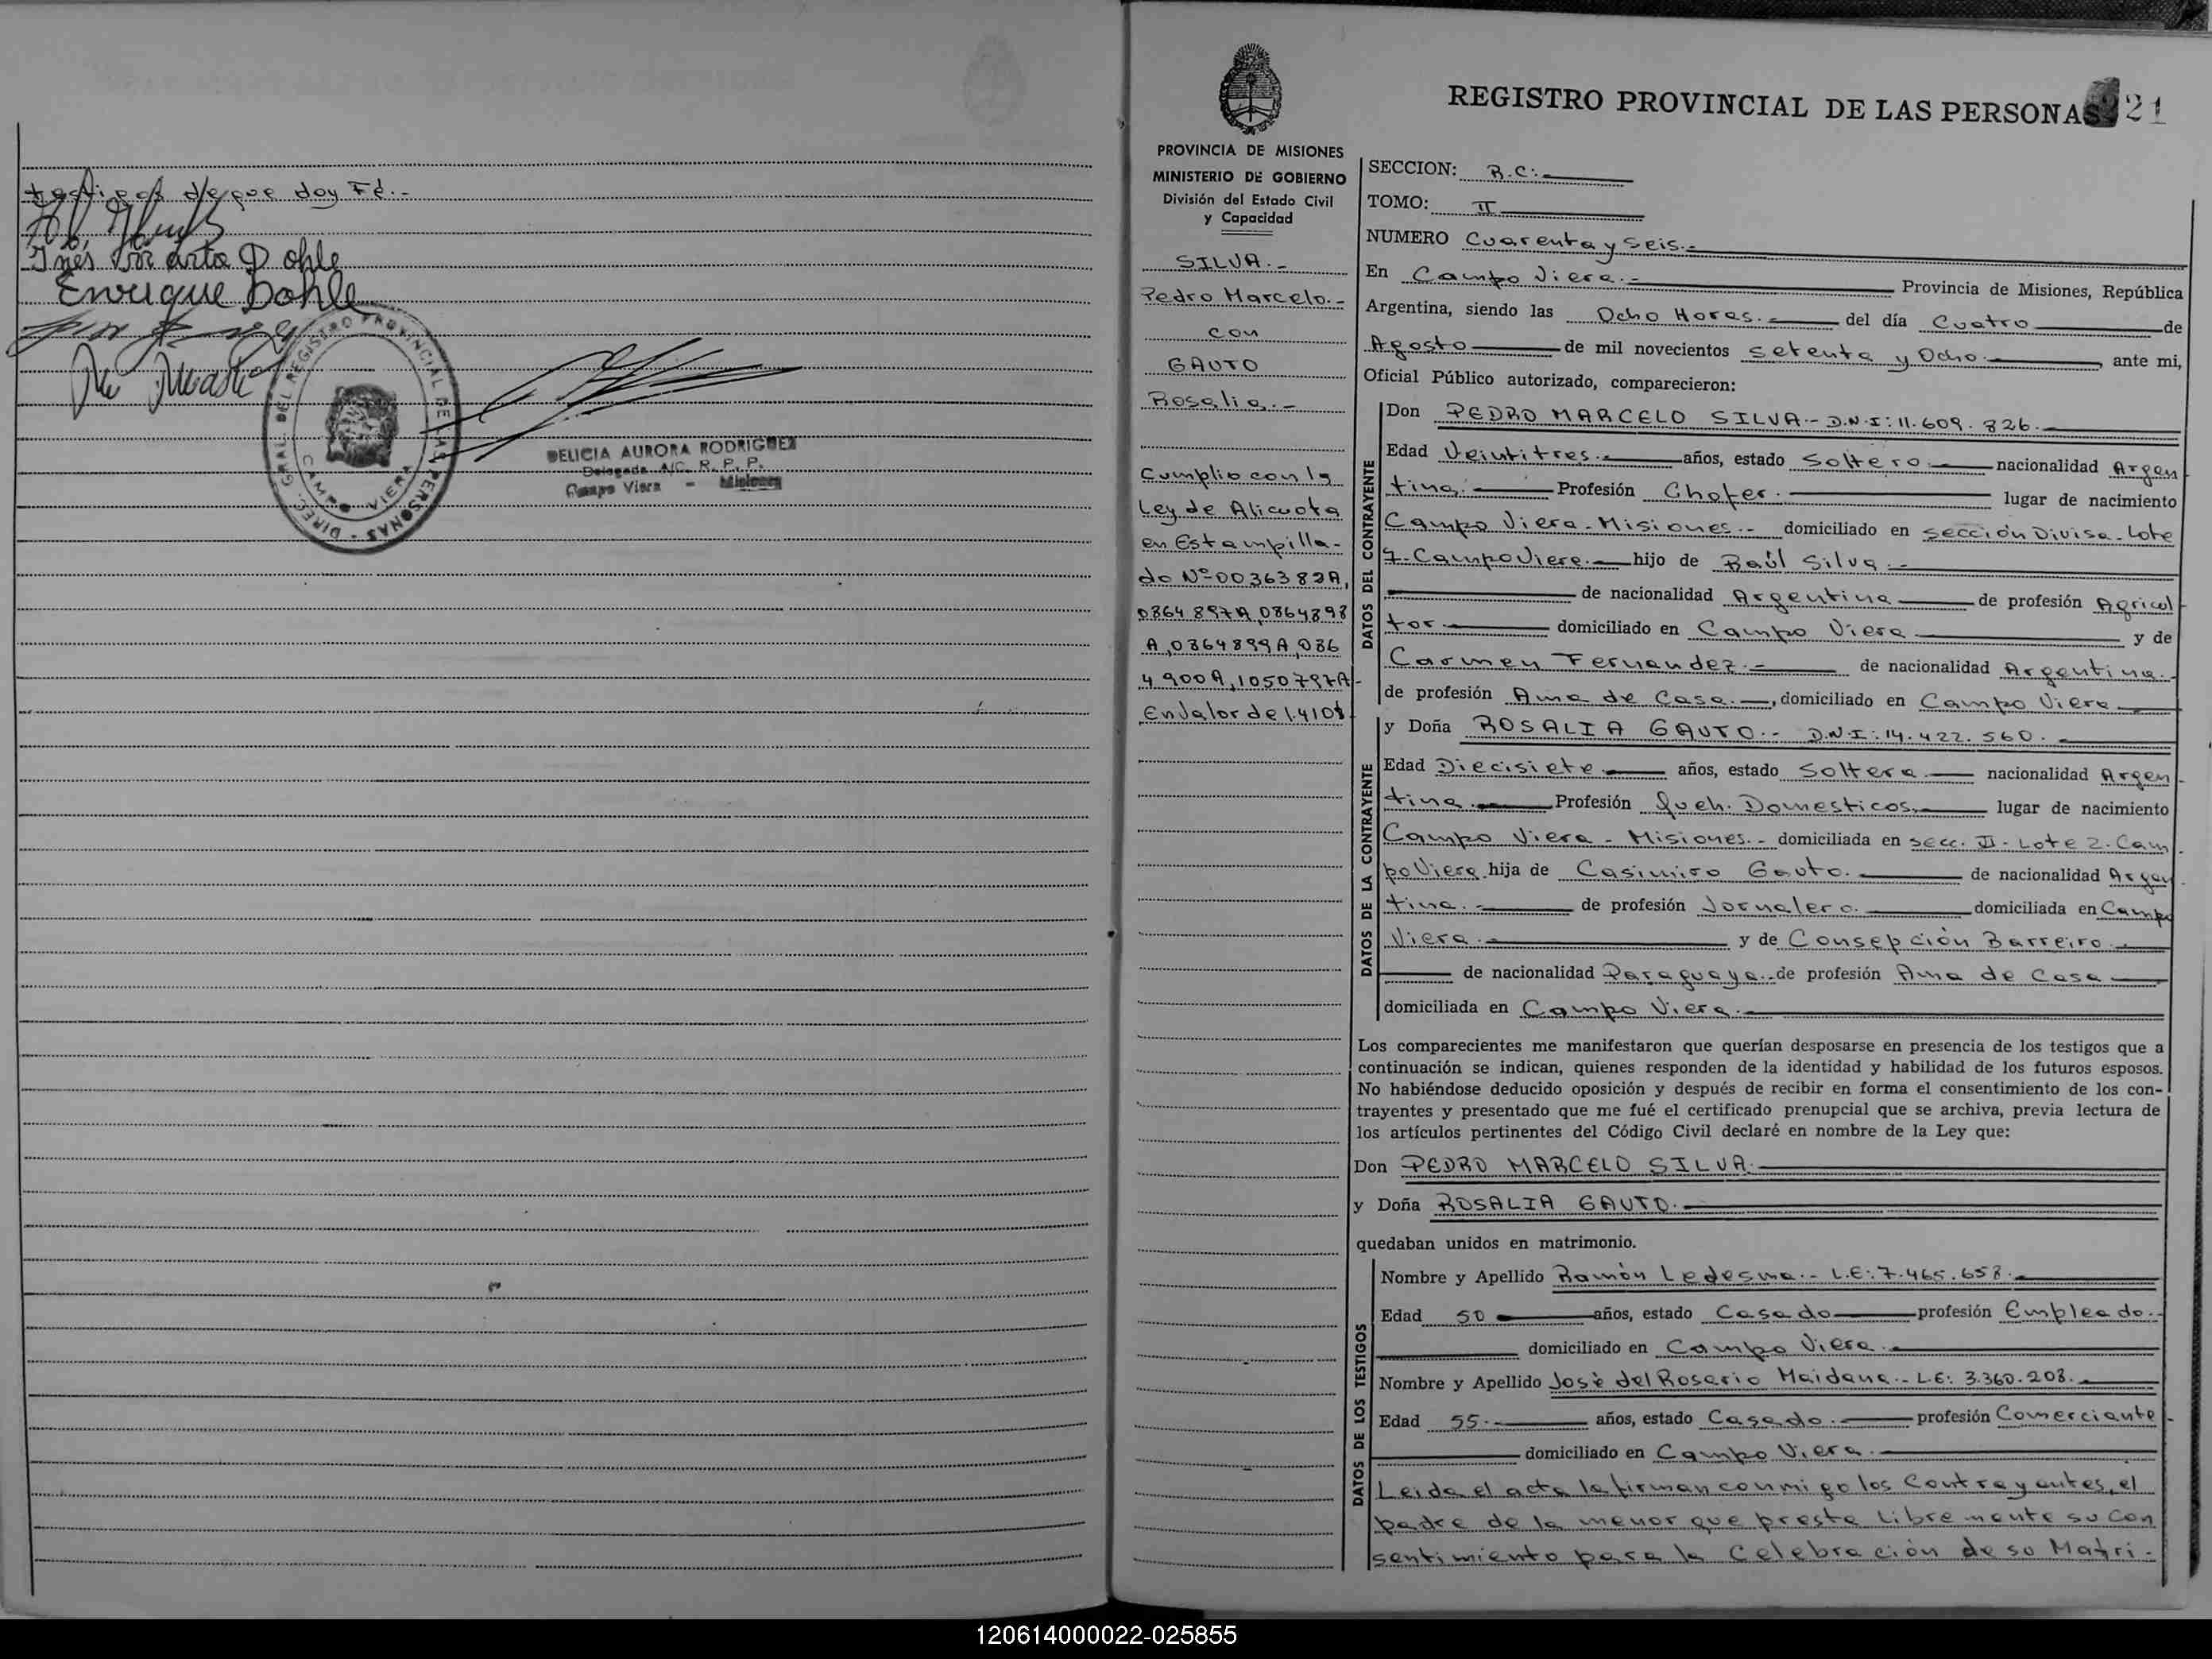 testigos de que doy Fé.-
Inés Dohle
Enrique Dohle
DIREC. GRAL. DEL REGISTRO PROVINCIAL DE LAS PERSONAS -
CAMPO VIERA
DELICIA AURORA RODRIGUEZ
Delegada A/C. R. P. P.
Campo Viera - Misiones
REGISTRO PROVINCIAL DE LAS PERSONAS 21
PROVINCIA DE MISIONES
MINISTERIO DE GOBIERNO
División del Estado Civil
y Capacidad
SILVA.-
Pedro Marcelo.-
con
GAUTO
Rosalia.-
Cumplio con la
Ley de Alicuota
en Estampilla-
do Nº 0036382A,
0364897A, 0364898
A, 0364899A, 036
4900A, 1050797A-
En Valor de 1.410$
SECCION: R.C.-
TOMO: II
NUMERO Cuarenta y Seis.-
En Campo Viera.- Provincia de Misiones, República
Argentina, siendo las Ocho Horas.- del día Cuatro de
Agosto de mil novecientos setenta y Ocho.- , ante mi,
Oficial Público autorizado, comparecieron:
DATOS DEL CONTRAYENTE
Don PEDRO MARCELO SILVA.- D.N.I: 11.609.826.
Edad Veintitres.- años, estado Soltero.- nacionalidad Argen
tina.- Profesión Chofer. lugar de nacimiento
Campo Viera - Misiones.- domiciliado en sección Divisa - Lote
7. Campo Viera.- hijo de Raúl Silva.-
de nacionalidad Argentina de profesión Agricul
tor.- domiciliado en Campo Viera y de
Carmen Fernandez.- de nacionalidad Argentina.-
de profesión Ama de Casa.-, domiciliado en Campo Viera
DATOS DE LA CONTRAYENTE
y Doña ROSALIA GAUTO.- D.N.I: 14.422.560.
Edad Diecisiete.- años, estado Soltera.- nacionalidad Argen
tina.- Profesión Queh. Domesticos.- lugar de nacimiento
Campo Viera - Misiones.- domiciliada en secc. II - Lote 2. Cam
po Viera hija de Casimiro Gauto. de nacionalidad Argen
tina.- de profesión Jornalero. domiciliada en Campo
Viera.- y de Consepción Barreiro.-
de nacionalidad Paraguaya.- de profesión Ama de Casa
domiciliada en Campo Viera.-
Los comparecientes me manifestaron que querían desposarse en presencia de los testigos que a
continuación se indican, quienes responden de la identidad y habilidad de los futuros esposos.
No habiéndose deducido oposición y después de recibir en forma el consentimiento de los con-
trayentes y presentado que me fué el certificado prenupcial que se archiva, previa lectura de
los artículos pertinentes del Código Civil declaré en nombre de la Ley que:
Don PEDRO MARCELO SILVA.
y Doña ROSALIA GAUTO.
quedaban unidos en matrimonio.
DATOS DE LOS TESTIGOS
Nombre y Apellido Ramón Ledesma.- L.E: 7.465.658.
Edad 50 años, estado Casado profesión Empleado.-
domiciliado en Campo Viera.
Nombre y Apellido José del Rosario Maidana.- L.E: 3.360.208.
Edad 55.- años, estado Casado.- profesión Comerciante-
domiciliado en Campo Viera.
Leida el acta la firman conmigo los Contrayentes, el
padre de la menor que presta libremente su con
sentimiento para la Celebración de su Matri-
120614000022-025855